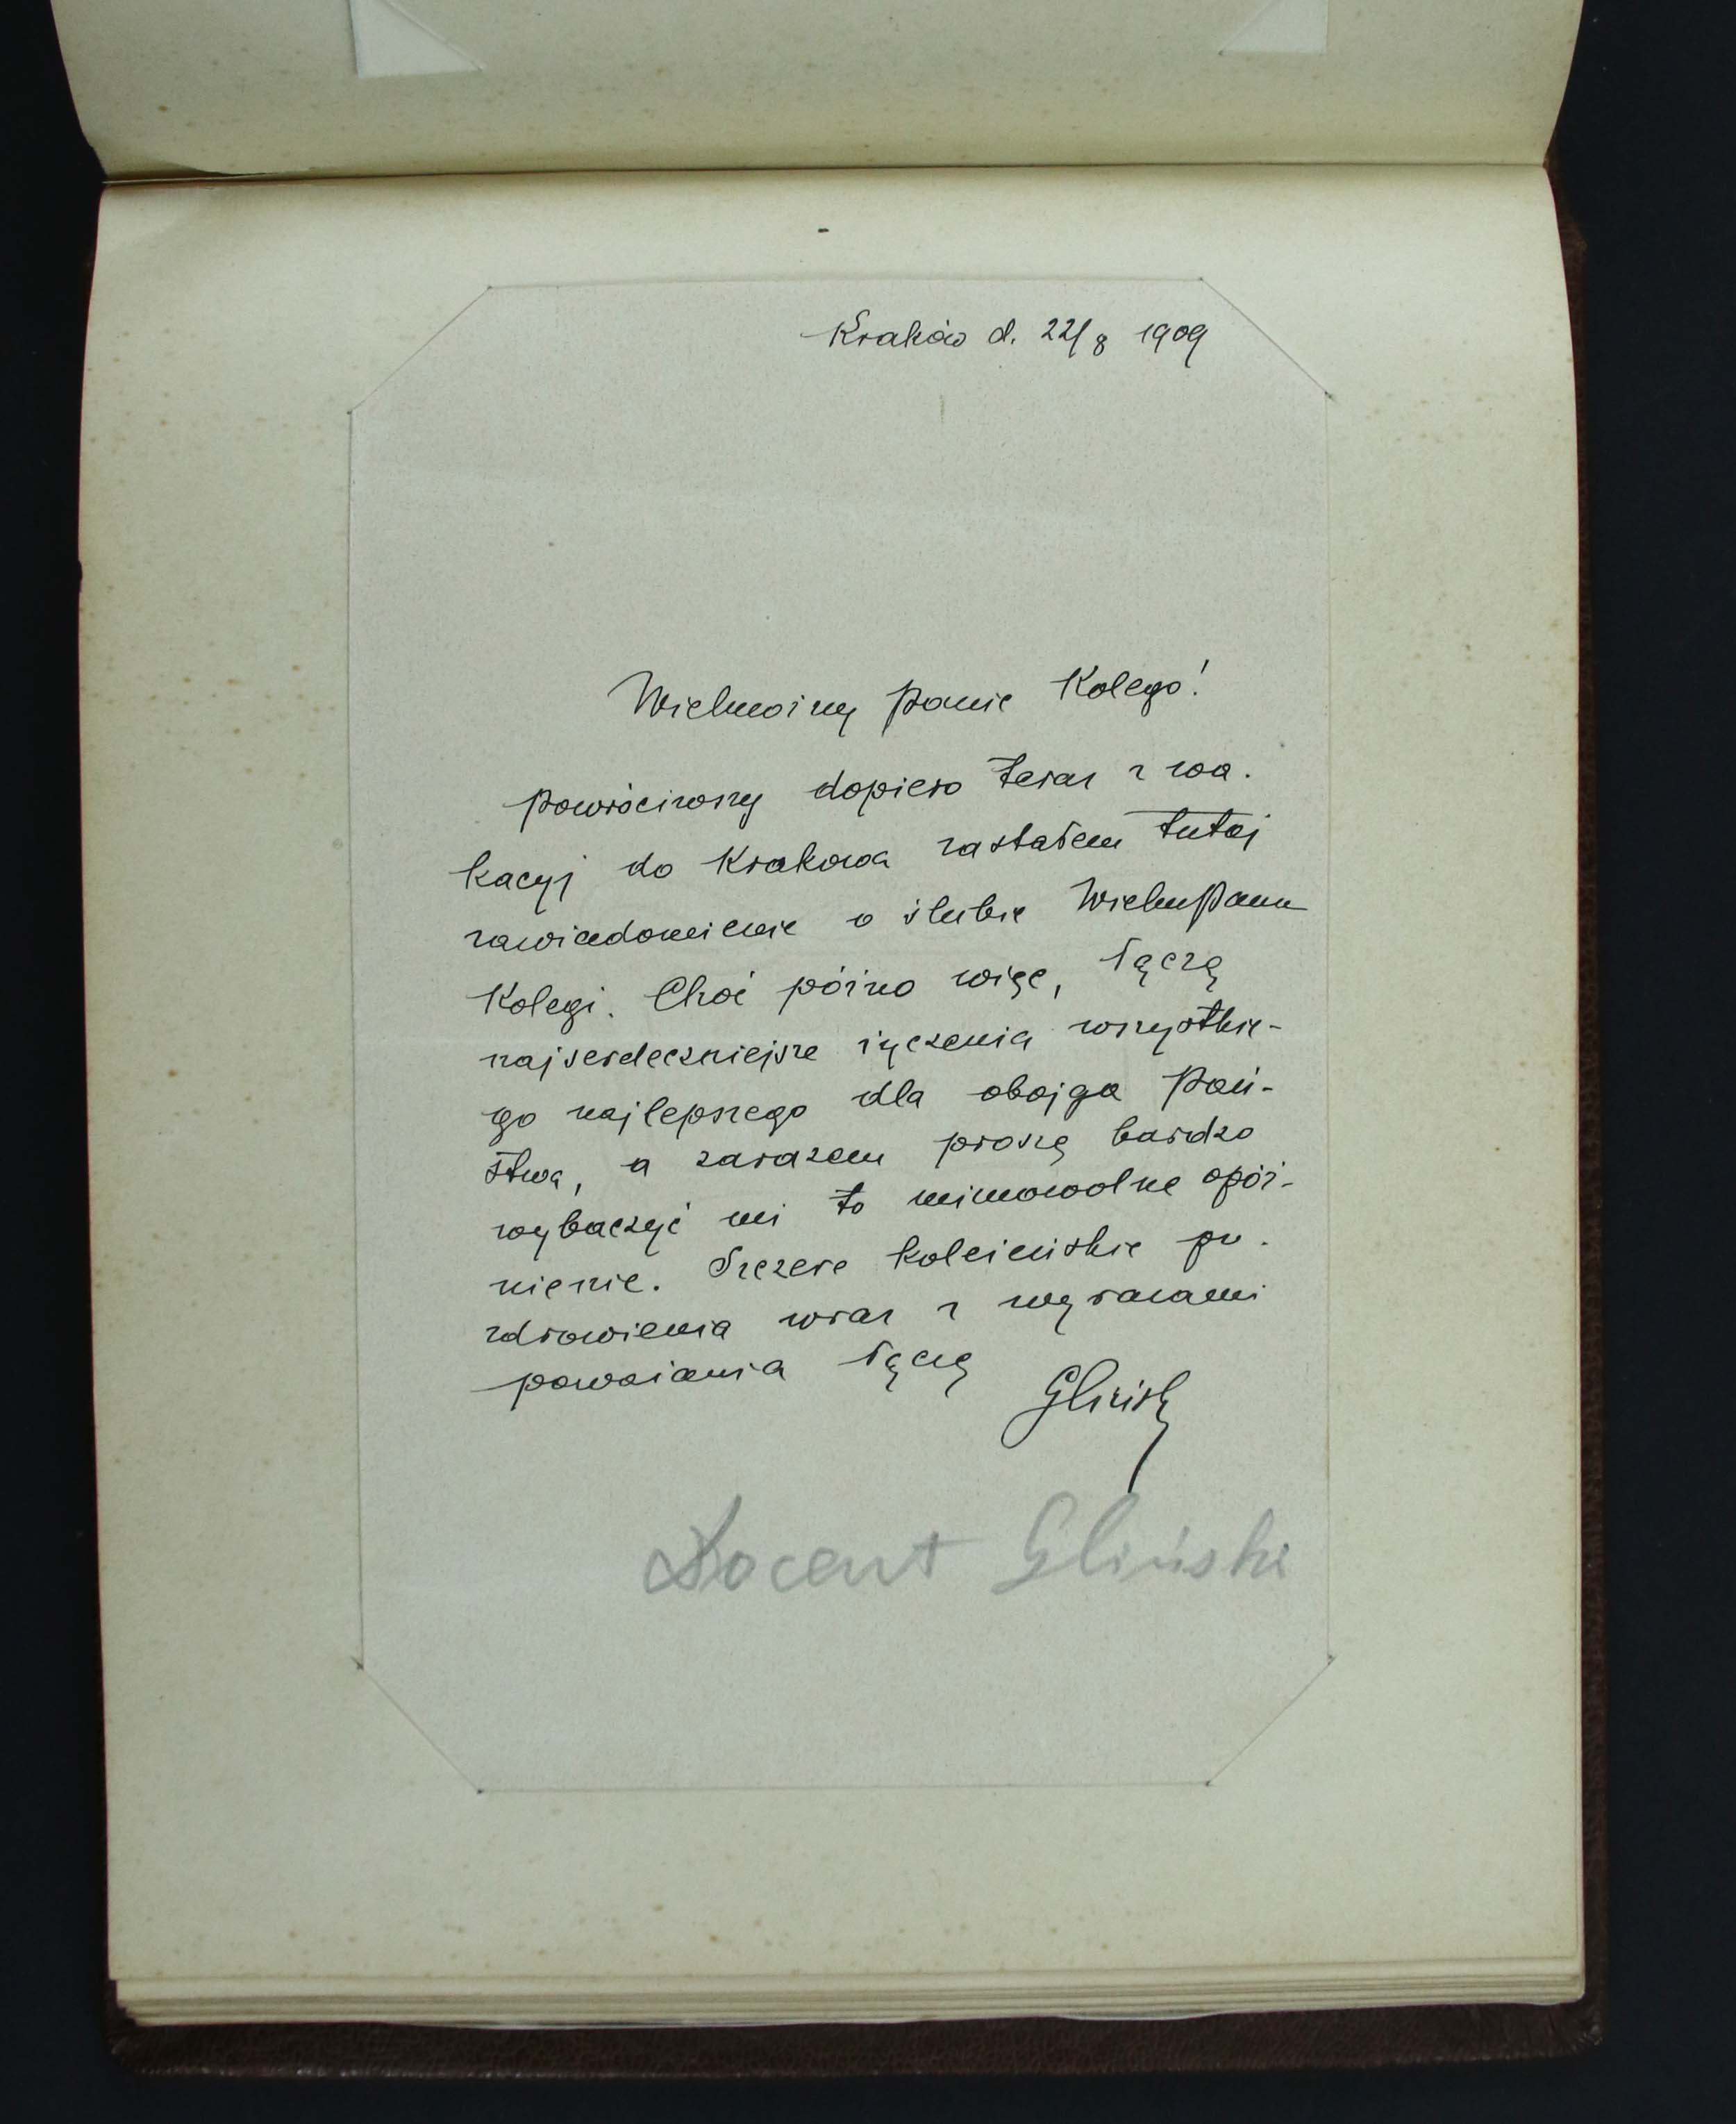 Kraków d. 22/8 1909
Wielmożny Panie Kolego!
Powróciwszy dopiero teraz z wa-
kacyj do Krakowa zastałem tutaj
zawiadomienie o ślubie WielmPana
Kolegi. Choć późno więc, łączę
najserdeczniejsze życzenia wszystkie-
go najlepszego dla obojga Pań-
stwa, a zarazem proszę bardzo
wybaczyć mi to mimowolne opóź-
nienie. Szczere koleżeńskie po-
zdrowienia wraz z wyrazami
poważania łączę
Gliński
Docent Gliński